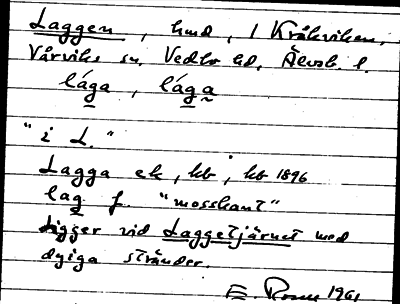 Laggen, hmd, i Kråkviken,
Vårviks sn. Vedbo hd, Älvsb. l.
lága, lága
"i L."
Lagga ek, kb, kb 1896
lag f. "mosskant"
Ligger vid Laggetjärnet med
dyiga stränder.
E. 1961